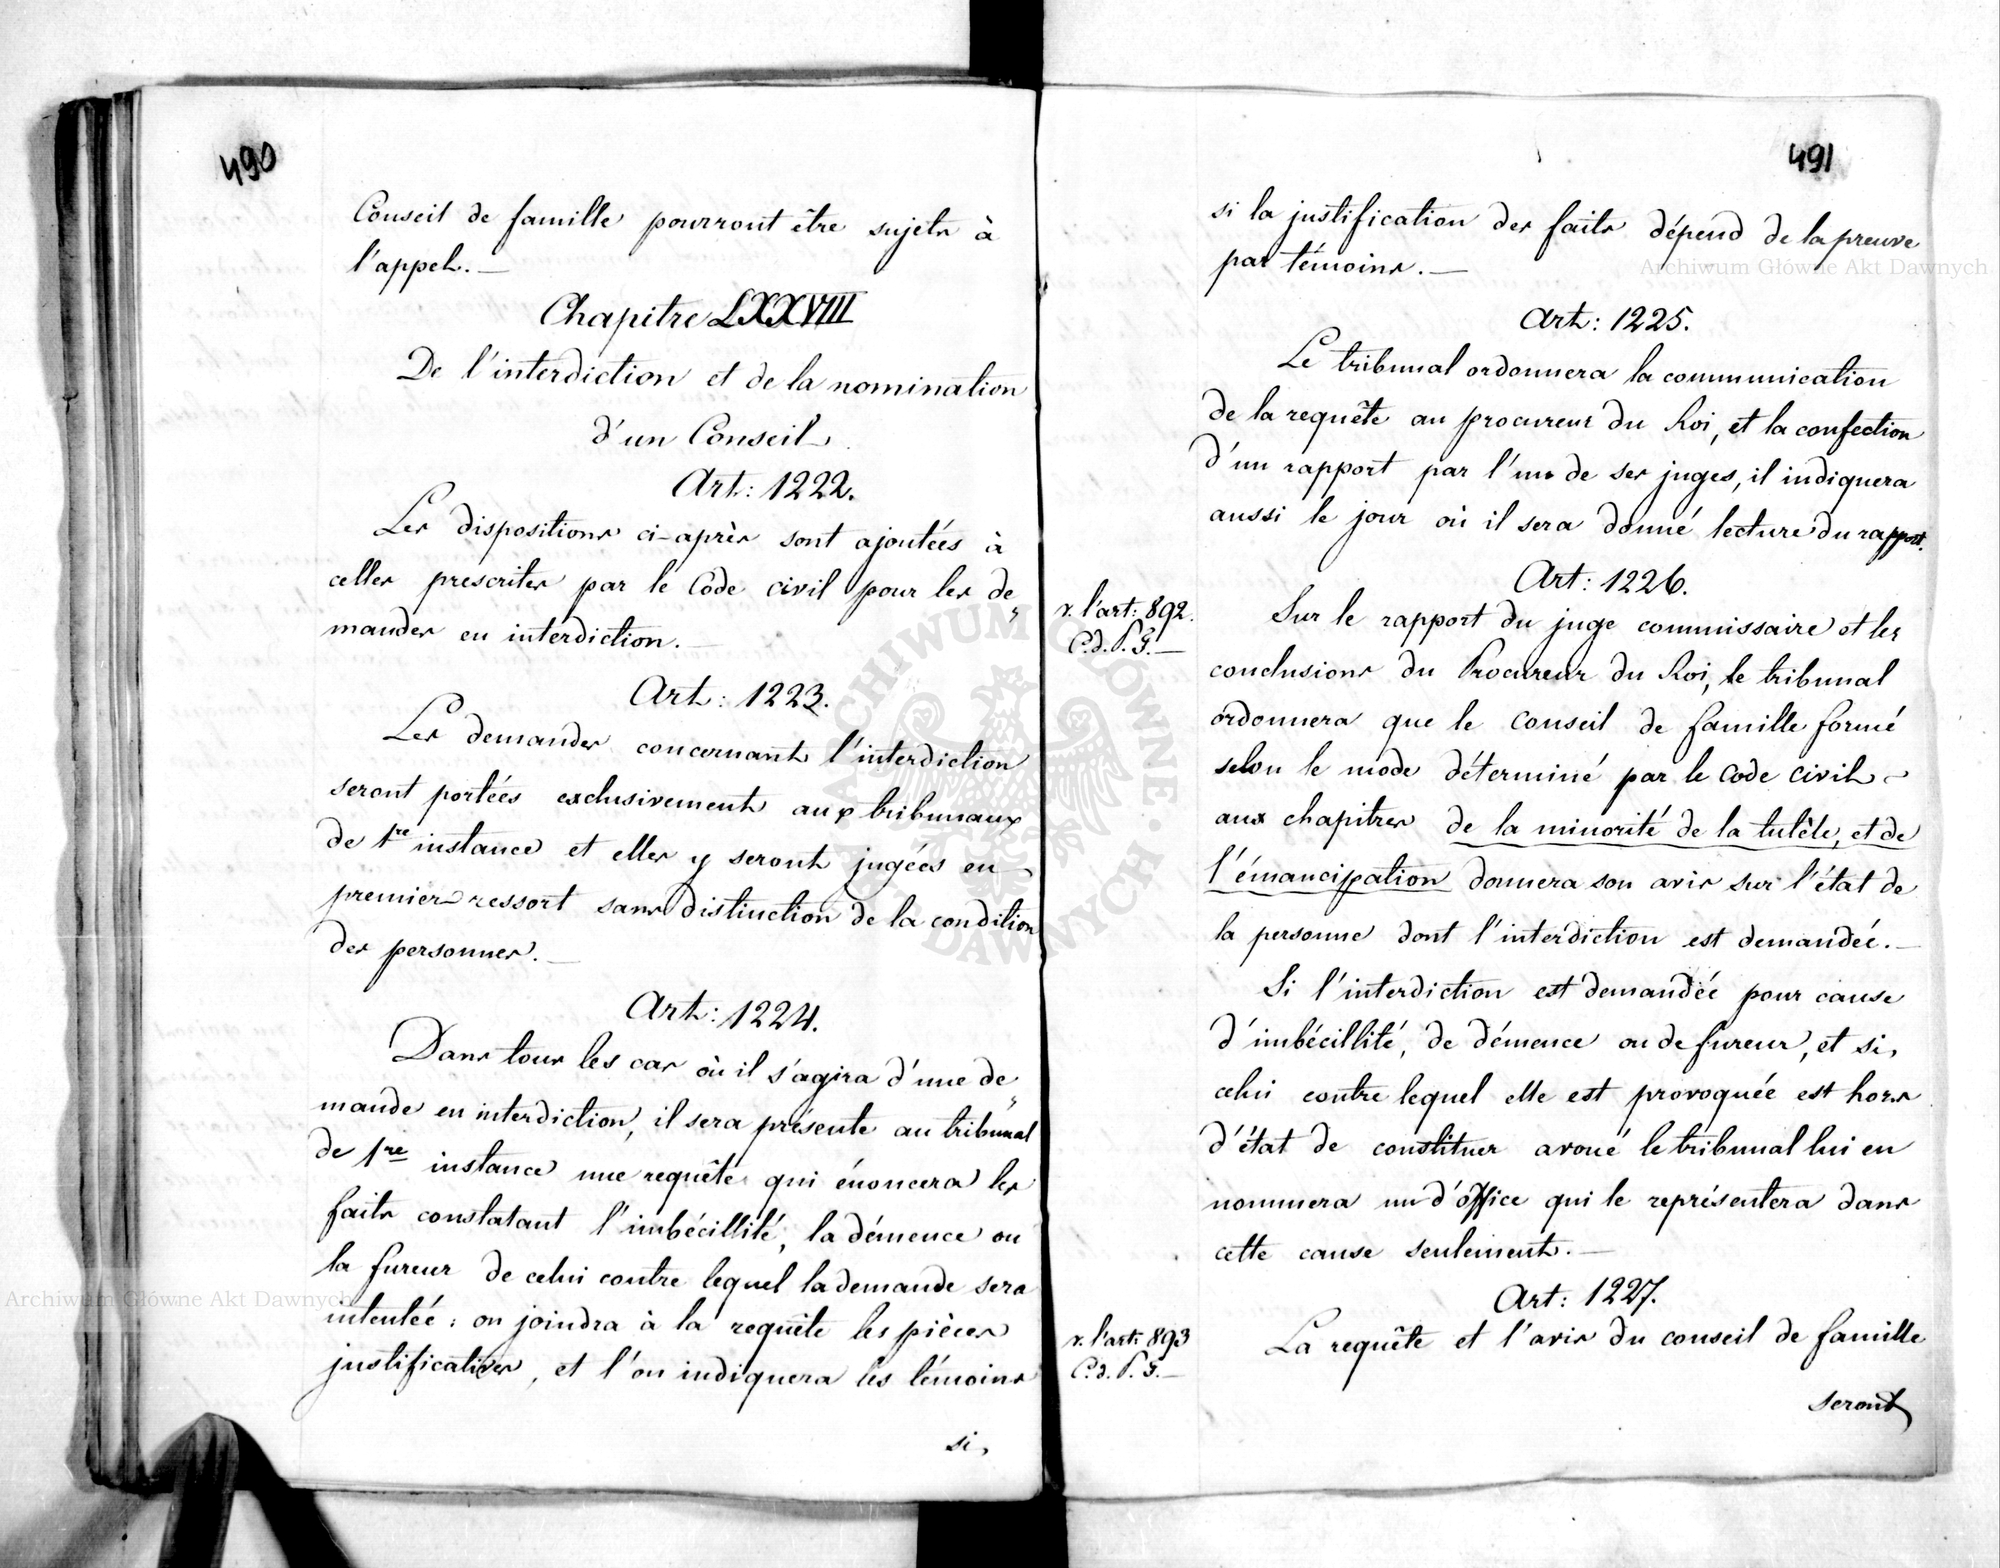 490
Conseil de famille pourront être sujets à
l'appel. —
Chapitre LXXVIII
De l'interdiction et de la nomination
d'un Conseil.
Art: 1222.
Les dispositions ci-après sont ajoutées à
celles prescrites par le Code civil pour les de„
mandes en interdiction. —
Art: 1223.
Les demandes concernant l'interdiction
seront portées exclusivement aux tribunaux
de 1re instance et elles y seront jugées en
premier ressort sans distinction de la condition
des personnes. —
Art: 1224.
Dans tous les cas où il s'agira d'une de„
mande en interdiction, il sera présente au tribunal
de 1re instance une requête qui énoncera les
faits constatant l'imbécillité, la démence ou
la fureur de celui contre lequel la demande sera
intentée: on joindra à la requête les pièces
justificatives, et l'on indiquera les témoins
si,
491
si la justification des faits dépend de la preuve
par témoins. —
Art: 1225.
Le tribunal ordonnera la communication
de la requête au procureur du Roi, et la confection
d'un rapport par l'un de ses juges, il indiquera
aussi le jour où il sera donné lecture du rapport.
Art: 1226.
v. l'art: 892.
C.d.P.F. —
Sur le rapport du juge commissaire et les
conclusions du Procureur du Roi, le tribunal
ordonnera que le conseil de famille formé
selon le mode déterminé par le Code civil –
aux chapitres de la minorité de la tutèle, et de
l'émancipation donnera son avis sur l'état de
la personne dont l'interdiction est demandée. —
Si l'interdiction est demandée pour cause
d'imbécillité, de démence ou de fureur, et si,
celui contre lequel elle est provoquée est hors
d'état de constituer avoué le tribunal lui en
nommera un d'office qui le représentera dans
cette cause seulement. —
Art: 1227.
v. l'art: 893
C.d.P.F. —
La requête et l'avis du conseil de famille
seront
Archiwum Główne Akt Dawnych
Archiwum Główne Akt Dawnych
ARCHIWUM GŁÓWNE AKT DAWNYCH